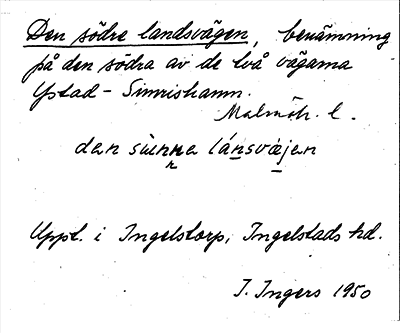 Den södre landsvägen, benämning
på den södra av de två vägarna
Ystad - Simrishamn.
Malmöh. l.
den sùenne lánsvæjen
Uppt. i Ingelstorp, Ingelstads hd.
I. Ingers 1950